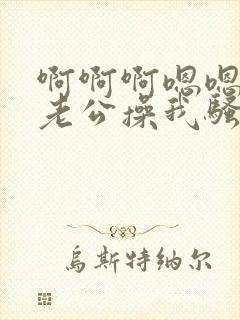 啊啊啊嗯嗯
老公操我骚
乌斯特纳尔